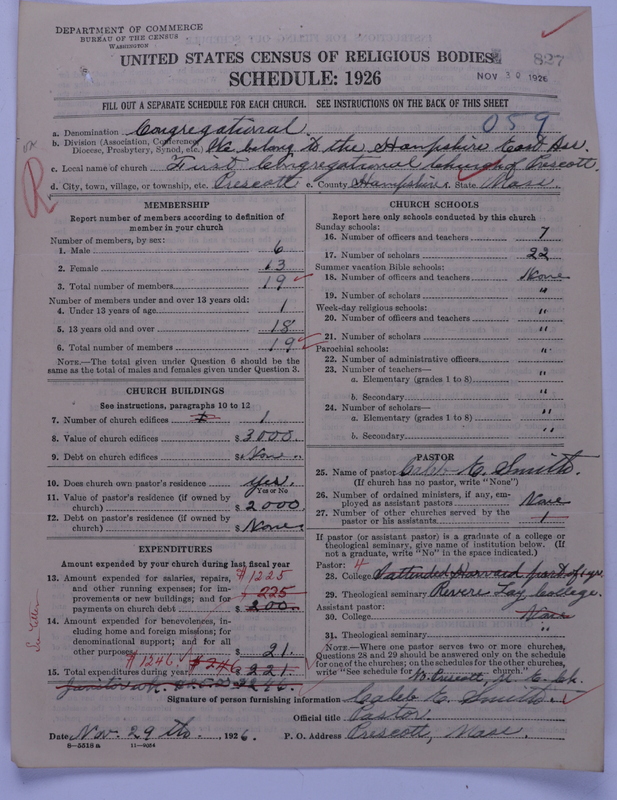 DEPARTMENT OF COMMERCE
BUREAU OF THE CENSUS
WASHINGTON
UNITED STATES CENSUS OF RELIGIOUS BODIES
827
SCHEDULE: 1926
NOV 30 1926
FILL OUT A SEPARATE SCHEDULE FOR EACH CHURCH. SEE INSTRUCTIONS ON THE BACK OF THIS SHEET
059
a. Denomination Congregational
b. Division (Association, Conference, Diocese, Presbytery, Synod, etc.) We belong to the Hampshire East Ass.
c. Local name of church First Congregational Church of Prescott.
d. City, town, village, or township, etc. Prescott e. County Hampshire f. State Mass
R
MEMBERSHIP
Report number of members according to definition of member in your church
Number of members, by sex:
1. Male 6
2. Female 13
3. Total number of members 19
Number of members under and over 13 years old:
4. Under 13 years of age 1
5. 13 years old and over 18
6. Total number of members 19
NOTE.—The total given under Question 6 should be the same as the total of males and females given under Question 3.
CHURCH BUILDINGS
See instructions, paragraphs 10 to 12
7. Number of church edifices 1
8. Value of church edifices $ 3000.
9. Debt on church edifices $ None
10. Does church own pastor's residence yes.
Yes or No
11. Value of pastor's residence (if owned by church) $ 2000
12. Debt on pastor's residence (if owned by church) $ None
EXPENDITURES
Amount expended by your church during last fiscal year
13. Amount expended for salaries, repairs, and other running expenses; for improvements or new buildings; and for payments on church debt $1225 $ 225 $ 200.
14. Amount expended for benevolences, including home and foreign missions; for denominational support; and for all other purposes $ 21.
15. Total expenditures during year $1246 $246 $ 221.
See Letter
CHURCH SCHOOLS
Report here only schools conducted by this church
Sunday schools:
16. Number of officers and teachers 7
17. Number of scholars 22
Summer vacation Bible schools:
18. Number of officers and teachers None
19. Number of scholars "
Week-day religious schools:
20. Number of officers and teachers "
21. Number of scholars "
Parochial schools:
22. Number of administrative officers "
23. Number of teachers—
a. Elementary (grades 1 to 8) "
b. Secondary "
24. Number of scholars—
a. Elementary (grades 1 to 8) "
b. Secondary "
PASTOR
25. Name of pastor Caleb E. Smith.
(If church has no pastor, write "None")
26. Number of ordained ministers, if any, employed as assistant pastors None
27. Number of other churches served by the pastor or his assistants 1
If pastor (or assistant pastor) is a graduate of a college or theological seminary, give name of institution below. (If not a graduate, write "No" in the space indicated.)
Pastor:
28. College I attended Harvard part of 1 yr.
29. Theological seminary Revere Lay College.
Assistant pastor:
30. College None
31. Theological seminary "
NOTE.—Where one pastor serves two or more churches, Questions 28 and 29 should be answered only on the schedule for one of the churches; on the schedules for the other churches, write "See schedule for N. Prescott church."
Signature of person furnishing information Caleb E. Smith
Official title Pastor
Date Nov. 29 th. , 1926. P. O. Address Prescott, Mass.
8—5518 a 11—9054